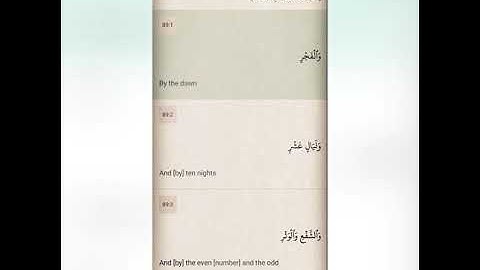 89:1
وَٱلْفَجْرِ
By the dawn
89:2
وَلَيَالٍ عَشْرٍ
And [by] ten nights
89:3
وَٱلشَّفْعِ وَٱلْوَتْرِ
And [by] the even [number] and the odd